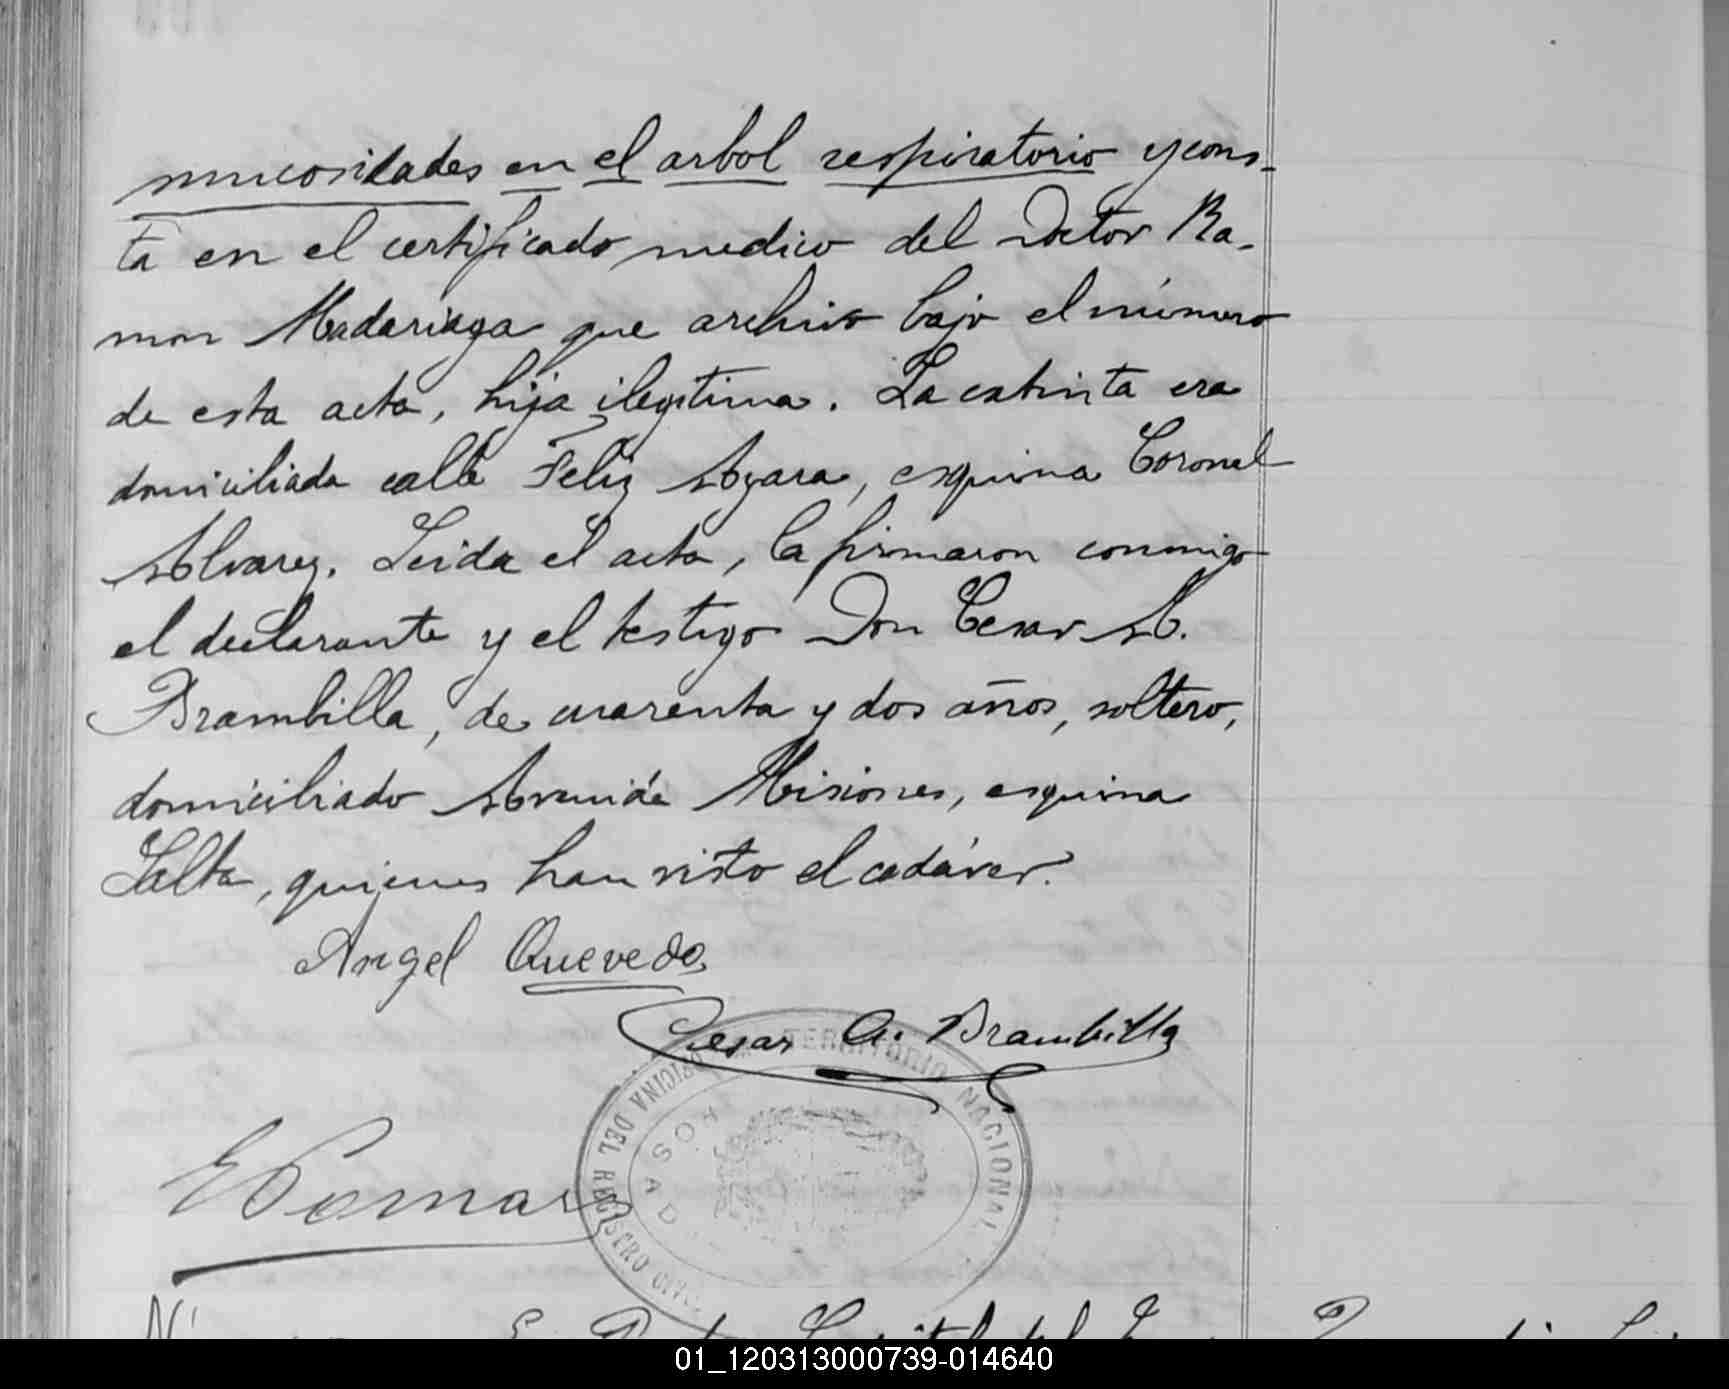 mucosidades en el arbol respiratorio y cons-
ta en el certificado medico del Doctor Ra-
mon Madariaga que archivo bajo el número
de esta acta, hija ilegitima. La extinta era
domiciliada calle Feliz Azara, esquina Coronel
Alvarez. Leida el acta, la firmaron conmigo
el declarante y el testigo Don Cesar A.
Brambilla, de cuarenta y dos años, soltero,
domiciliado Avenida Misiones, esquina
Salta, quienes han visto el cadáver.
Angel Quevedo
Cesar A. Brambilla
OFICINA DEL REGISTRO CIVIL
TERRITORIO NACIONAL
POSAD
E Pomar
01_120313000739-014640